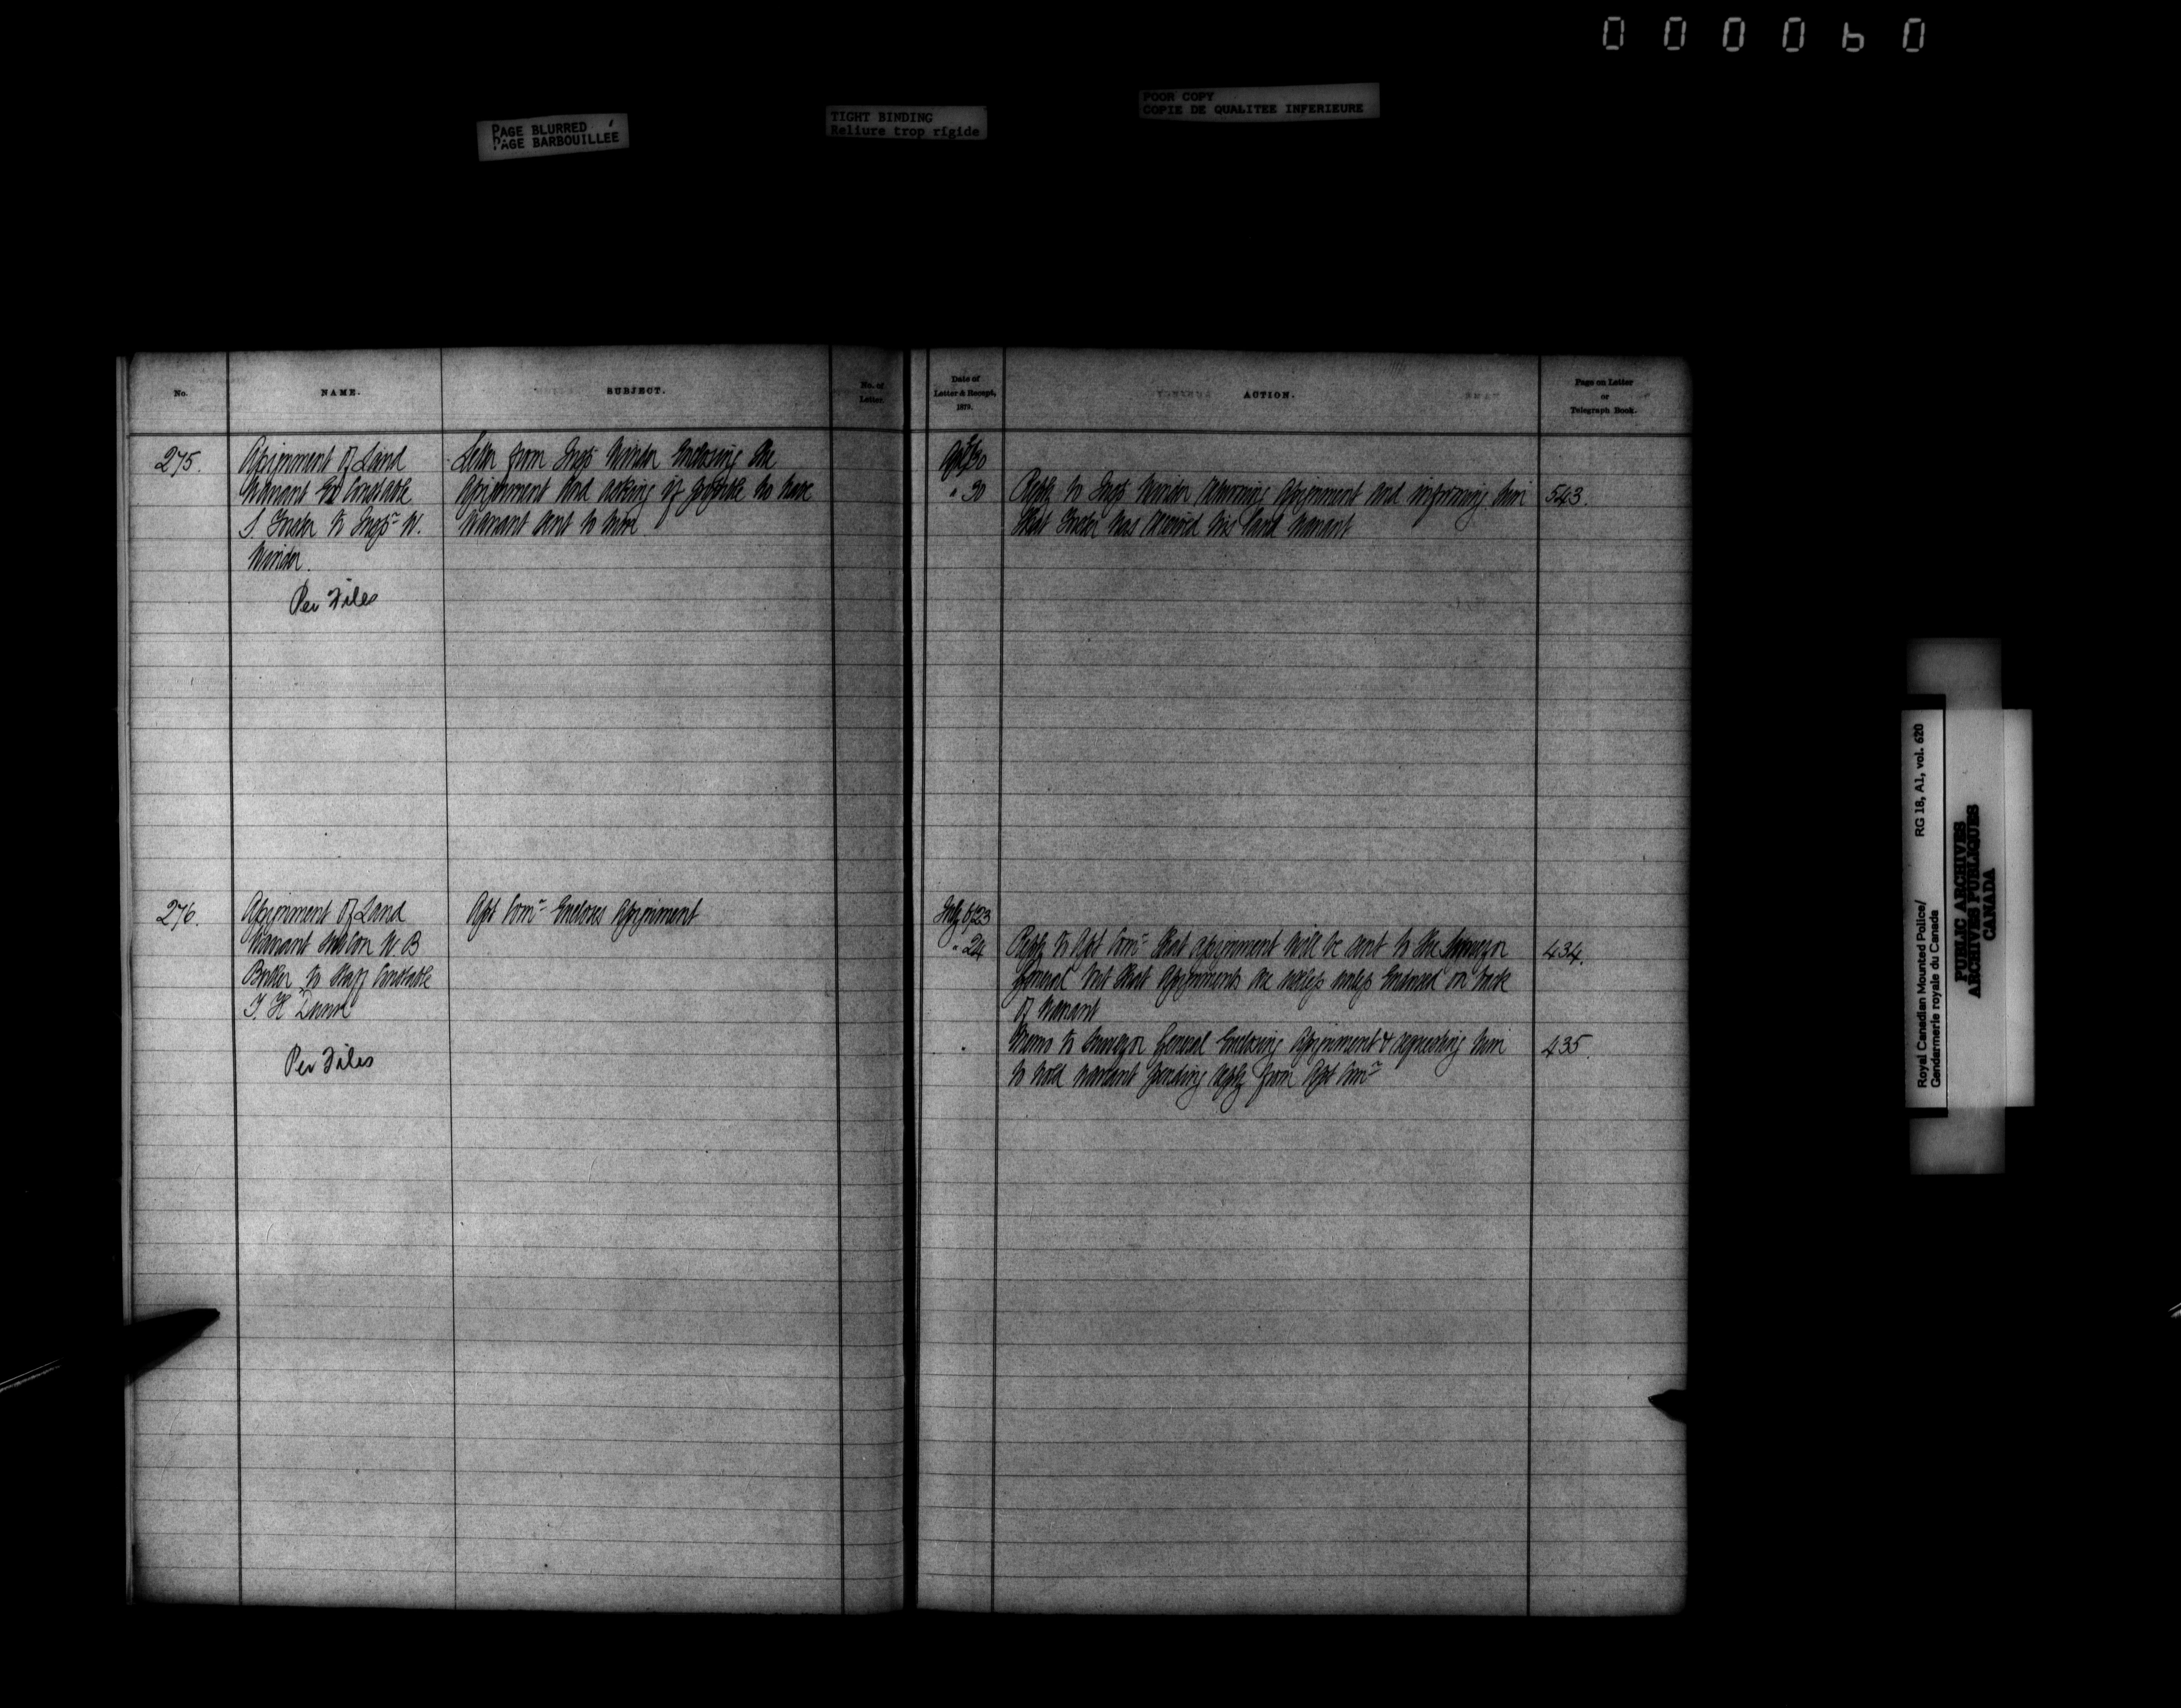 000060
PAGE BLURRED
PAGE BARBOUILLÉE
TIGHT BINDING
Reliure trop rigide
POOR COPY
COPIE DE QUALITEE INFERIEURE
No.
NAME.
SUBJECT.
No. of
Letter
Date of
Letter & Receipt,
1879.
ACTION.
Page on Letter
or
Telegraph Book.
275.
Assignment of Land
Warrant Ex Constable
S. to Inspr W.
Winder.
Per Files
Letter from Inspr Winder Enclosing the
Assignment and asking if possible to have
Warrant sent to him
30
" 30
Reply to Inspr Winder returning Assignment and informing him
that has received his land warrant
543.
276.
Assignment of Land
Warrant W B
to Staff Constable
T. H. Dunne
Per Files
Asst Comr Encloses Assignment
July 6/23
" 24
Reply to Asst Comr that assignment will be sent to the Surveyor
General but that Assignments are useless unless Endorsed on back
of Warrant
434.
"
Memo to Surveyor General Enclosing Assignment & requesting him
to hold warrant pending reply from Asst Comr
435.
Royal Canadian Mounted Police/
Gendarmerie royale du Canada
RG 18, A1, vol. 620
PUBLIC ARCHIVES
ARCHIVES PUBLIQUES
CANADA